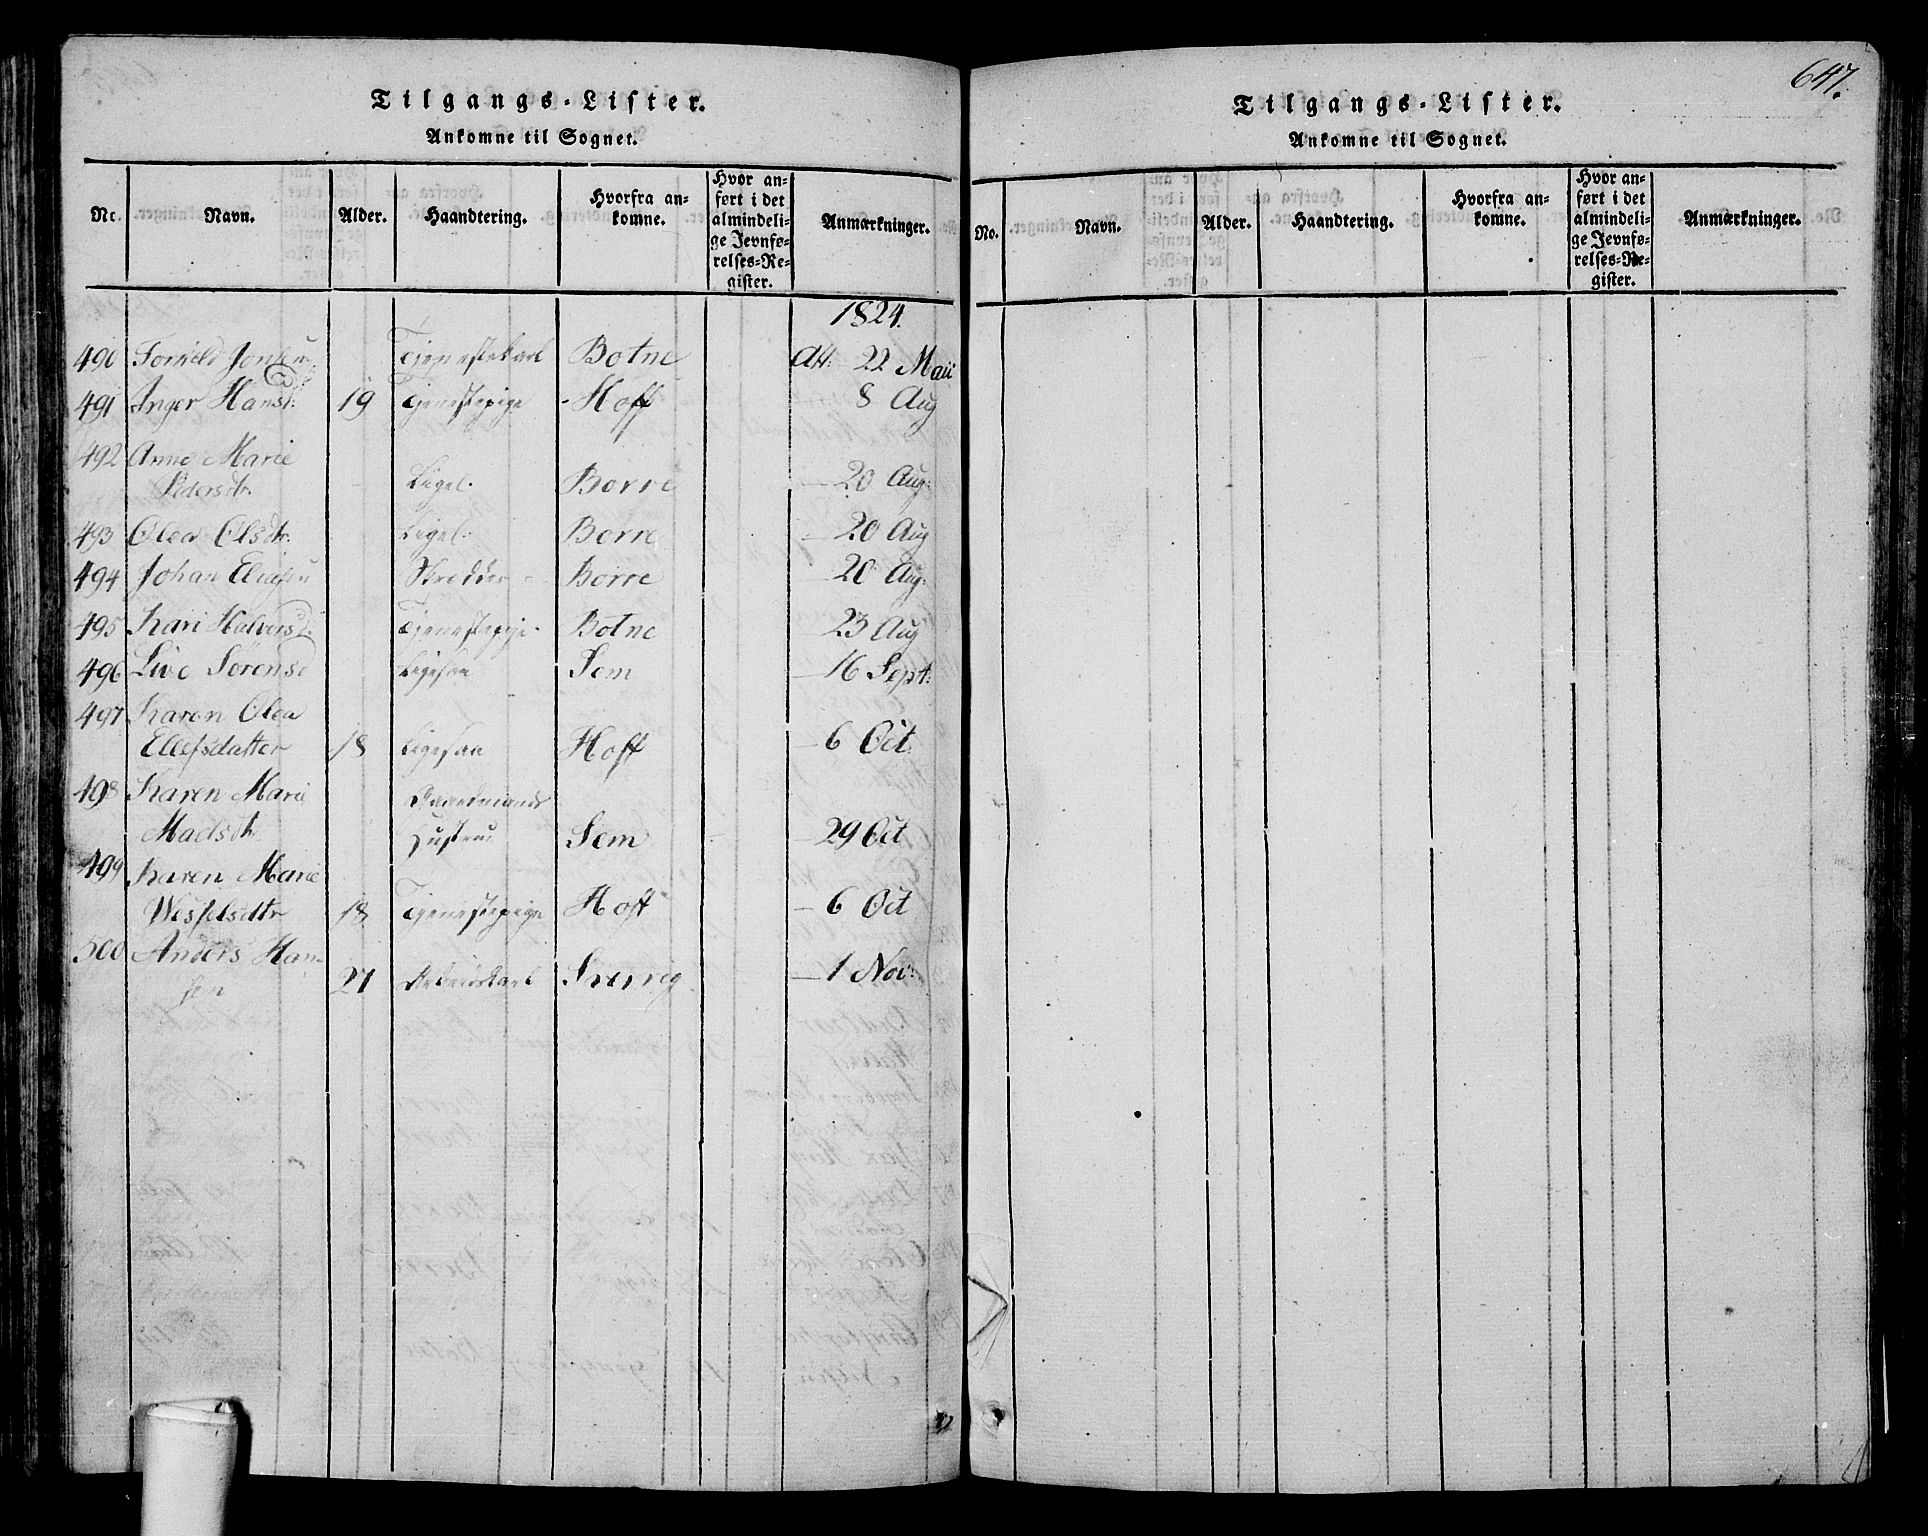 Tilgangs-Lister.
Ankomne til Sognet.
No. Navn. Alder. Haandtering. Hvorfra ankomne. Hvor anført i det almindelige Jevnførelses-Register. Anmærkninger.
1824.
490 Jonsen Tjenestekarl Botne Att: 22 Maii
491 Inger Hansd. 19 Tjenestepige Hoff 8 Aug
492 Anne Marie
Pedersdtr. Ligel. Borre 20 Aug:
493 Olea Olsdtr. Ligel. Borre 20 Aug
494 Johan Eliasen Skredder Borre 20 Aug:
495 Kari Halversd. Tjenestepige Botne 23 Aug
496 Live Sørensd Ligesaa Sem 16 Sept:
497 Karen Olea
Ellefsdatter 18 Ligesaa Hoff 6 Oct.
498 Karen Marie Gaardmands
Madsdtr Hustru Sem 29 Oct
499 Karen Marie
Wesselsdtr 18 Tjenestepige Hoff 6 Oct
500 Anders Han-
sen 27 Arbeidskarl Sverrig 1 Nov:
647.
Tilgangs-Lister.
Ankomne til Sognet.
No. Navn. Alder. Haandtering. Hvorfra ankomne. Hvor anført i det almindelige Jevnførelses-Register. Anmærkninger.